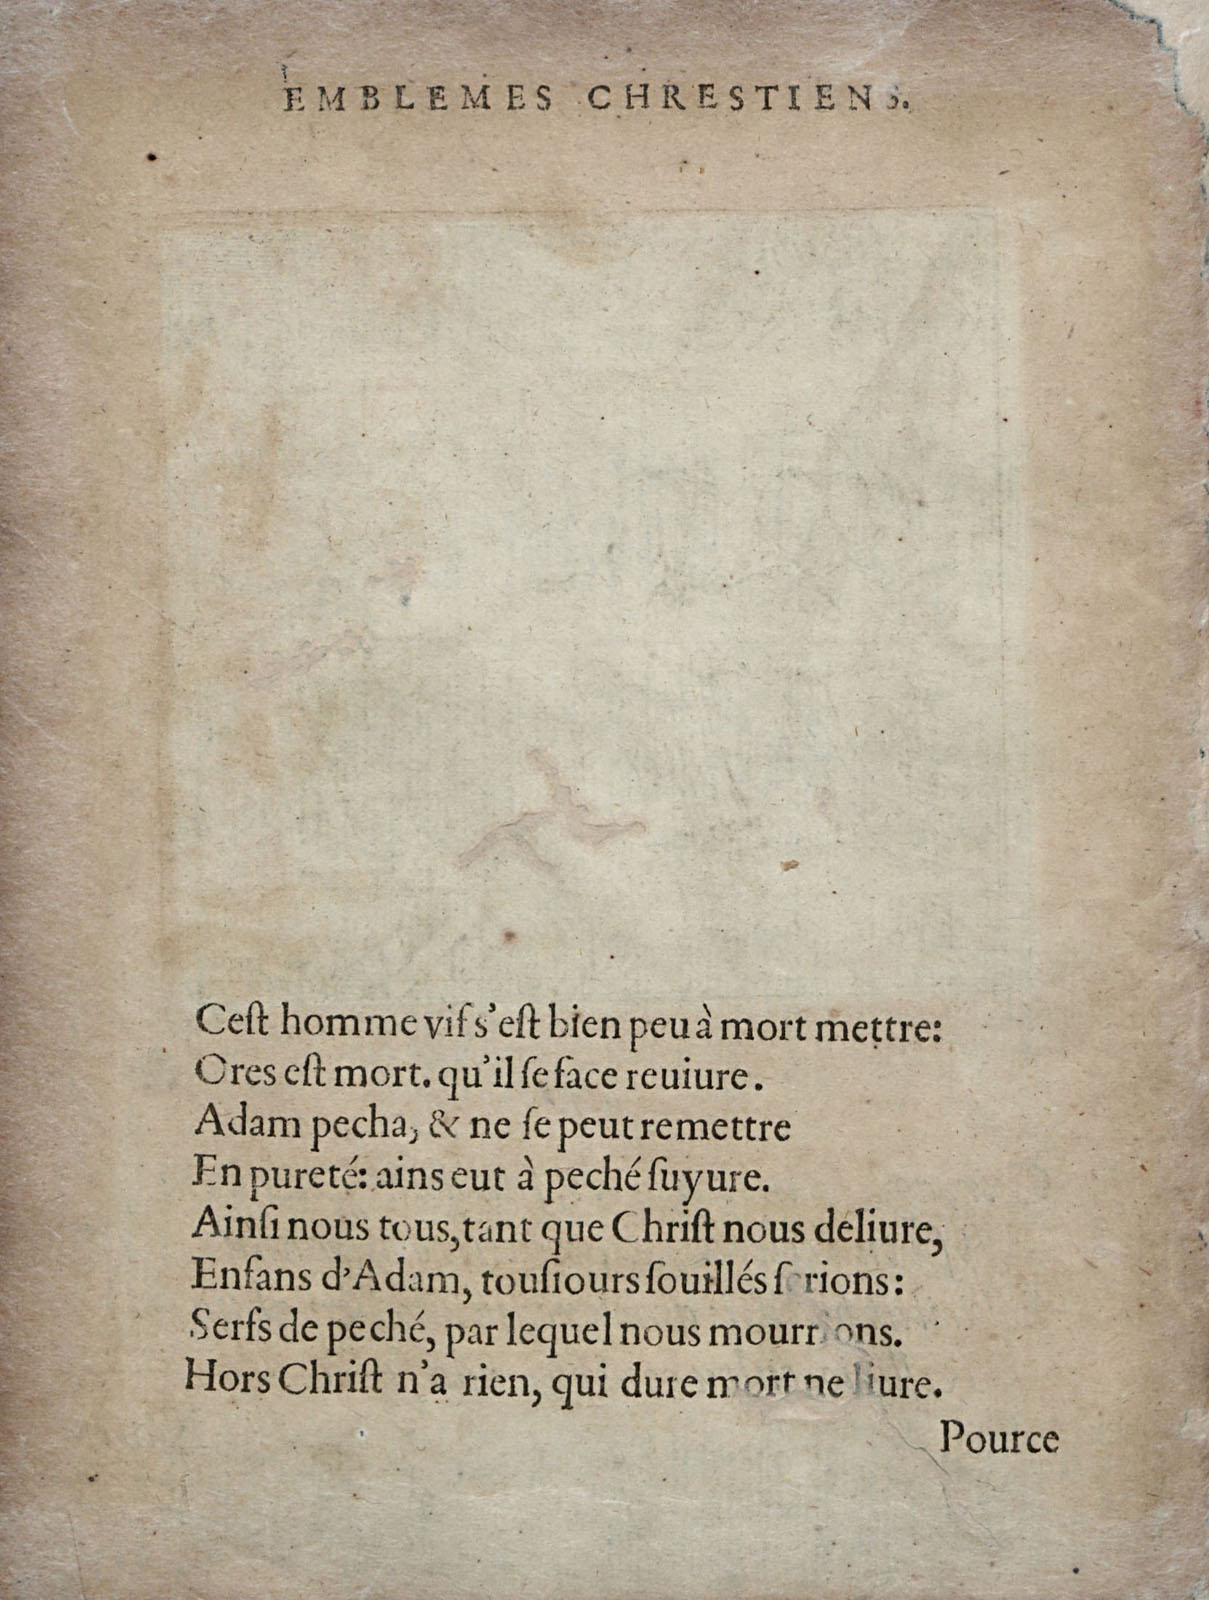 EMBLEMES CHRESTIENS.
Ceſt homme vif s'eſt bien peu à mort mettre:
Ores eſt mort. qu'il ſe face reuiure.
Adam pecha, & ne ſe peut remettre
En pureté: ains eut à peché ſuyure.
Ainſi nous tous, tant que Chriſt nous deliure,
Enfans d'Adam, touſiours ſouillés ſerions:
Serfs de peché, par lequel nous mourrions.
Hors Chriſt n'a rien, qui dure mort ne liure.
Pource